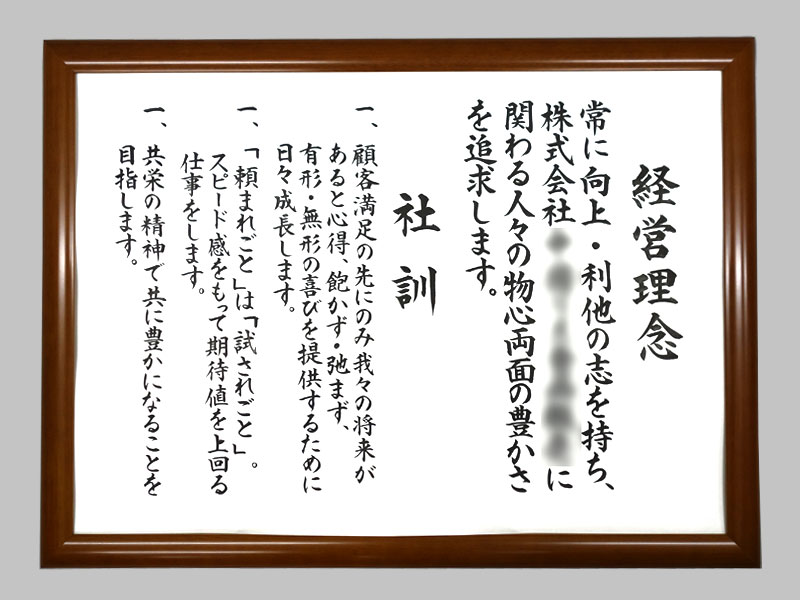 経営理念
常に向上・利他の志を持ち、
株式会社に
関わる人々の物心両面の豊かさ
を追求します。
社訓
一、顧客満足の先にのみ我々の将来が
あると心得、飽かず・弛まず、
有形・無形の喜びを提供するために
日々成長します。
一、「頼まれごと」は「試されごと」。
スピード感をもって期待値を上回る
仕事をします。
一、共栄の精神で共に豊かになることを
目指します。